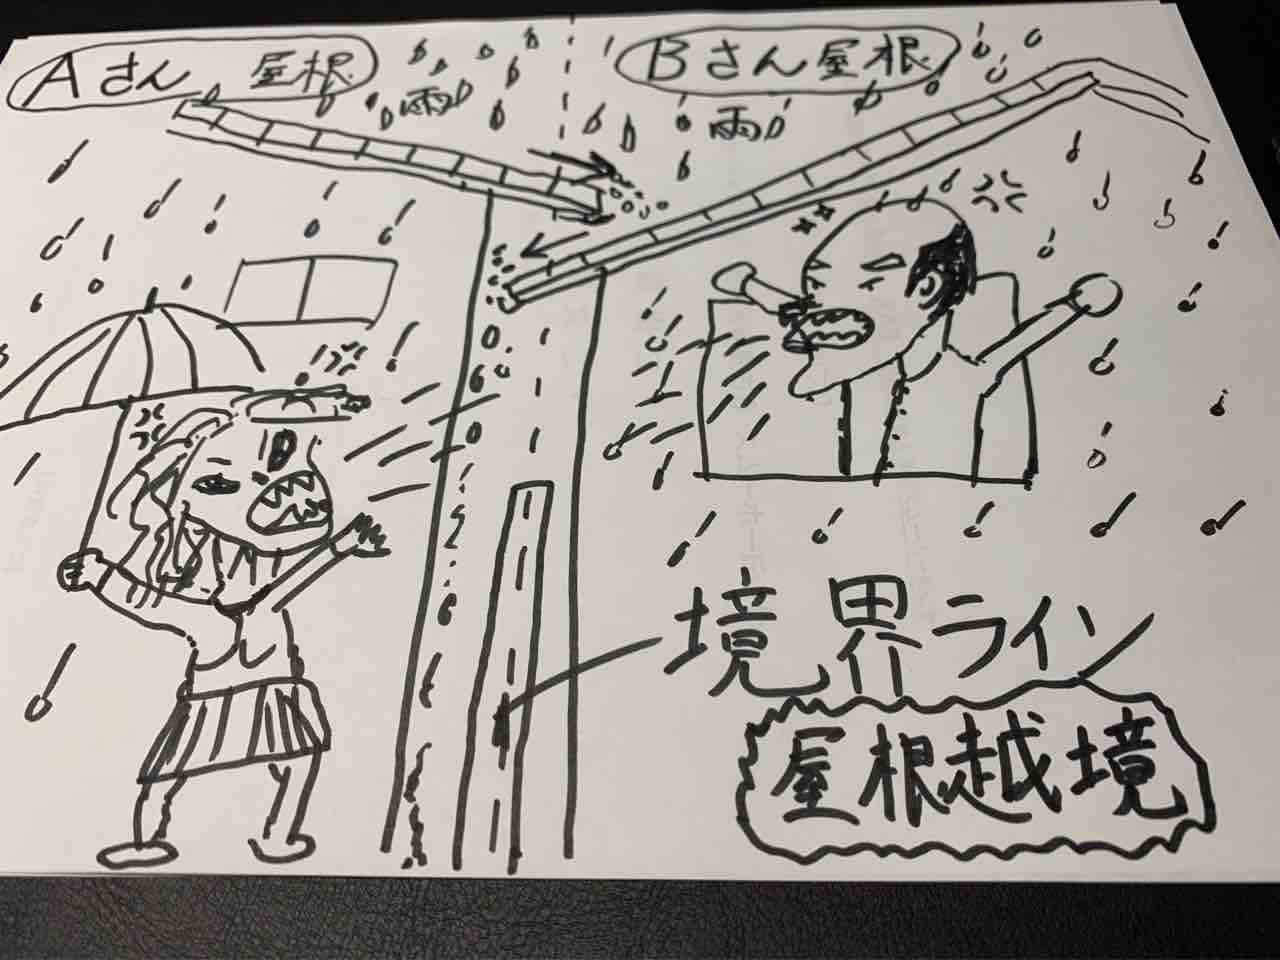 Aさん 屋根
Bさん屋根
雨
雨
境界ライン
屋根越境